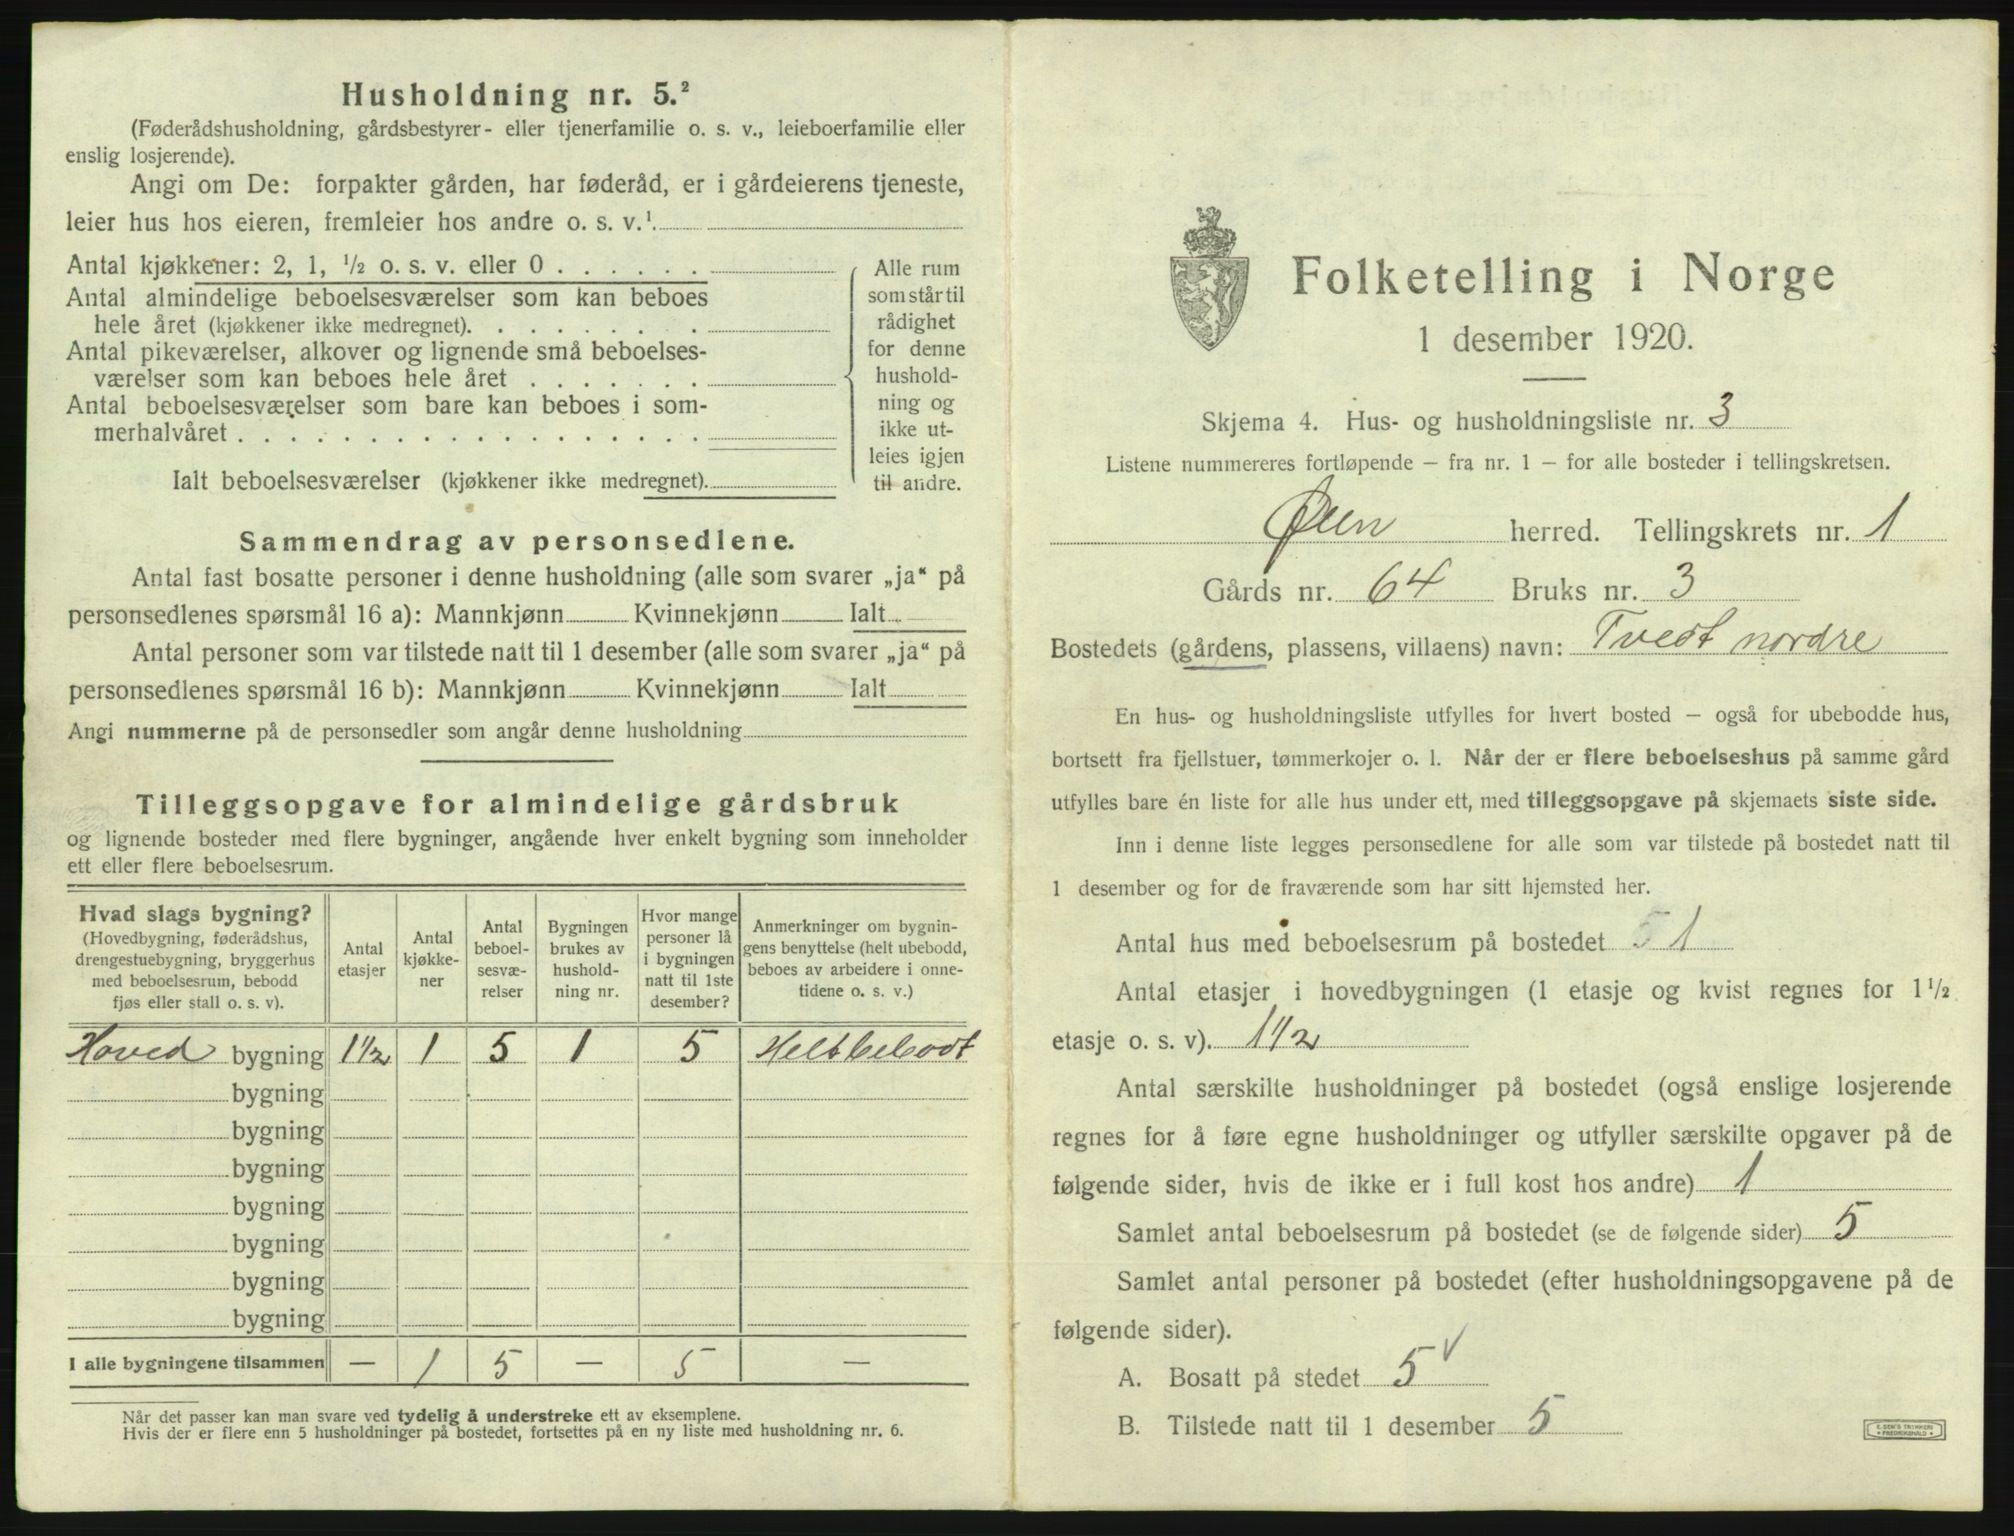 Husholdning nr. 5.²
(Føderådshusholdning, gårdsbestyrer- eller tjenerfamilie o. s. v., leieboerfamilie eller
enslig losjerende).
Angi om De: forpakter gården, har føderåd, er i gårdeierens tjeneste,
leier hus hos eieren, fremleier hos andre o. s. v.¹
Antal kjøkkener: 2, 1, ½ o. s. v. eller 0 . . . . . .
Antal almindelige beboelsesværelser som kan beboes
hele året (kjøkkener ikke medregnet). . . . . . . . .
Antal pikeværelser, alkover og lignende små beboelses-
værelser som kan beboes hele året . . . . . . .
Antal beboelsesværelser som bare kan beboes i som-
merhalvåret . . . . . . . . . . . . . . . . . .
Ialt beboelsesværelser (kjøkkener ikke medregnet).
Alle rum
som står til
rådighet
for denne
hushold-
ning og
ikke ut-
leies igjen
til andre.
Sammendrag av personsedlene.
Antal fast bosatte personer i denne husholdning (alle som svarer „ja“ på
personsedlenes spørsmål 16 a): Mannkjønn Kvinnekjønn Ialt
Antal personer som var tilstede natt til 1 desember (alle som svarer „ja“ på
personsedlenes spørsmål 16 b): Mannkjønn Kvinnekjønn Ialt
Angi nummerne på de personsedler som angår denne husholdning
Tilleggsopgave for almindelige gårdsbruk
og lignende bosteder med flere bygninger, angående hver enkelt bygning som inneholder
ett eller flere beboelsesrum.
Hvad slags bygning?
(Hovedbygning, føderådshus,
drengestuebygning, bryggerhus
med beboelsesrum, bebodd
fjøs eller stall o. s. v).
Antal
etasjer
Antal
kjøkke-
ner
Antal
beboel-
sesvæ-
relser
Bygningen
brukes av
hushold-
ning nr.
Hvor mange
personer lå
i bygningen
natt til 1ste
desember?
Anmerkninger om bygnin-
gens benyttelse (helt ubebodd,
beboes av arbeidere i onne-
tidene o. s. v.)
Hoved bygning 1½ 1 5 1 5 Helt bebodt
bygning
bygning
bygning
bygning
bygning
bygning
bygning
I alle bygningene tilsammen — 1 5 — 5 —
Når det passer kan man svare ved tydelig å understreke ett av eksemplene.
Hvis der er flere enn 5 husholdninger på bostedet, fortsettes på en ny liste med husholdning nr. 6.
Folketelling i Norge
1 desember 1920.
Skjema 4. Hus- og husholdningsliste nr. 3
Listene nummereres fortløpende – fra nr. 1 – for alle bosteder i tellingskretsen.
Øien herred. Tellingskrets nr. 1
Gårds nr. 64 Bruks nr. 3
Bostedets (gårdens, plassens, villaens) navn: Tvedt nordre
En hus- og husholdningsliste utfylles for hvert bosted – også for ubebodde hus,
bortsett fra fjellstuer, tømmerkojer o. l. Når der er flere beboelseshus på samme gård
utfylles bare én liste for alle hus under ett, med tilleggsopgave på skjemaets siste side.
Inn i denne liste legges personsedlene for alle som var tilstede på bostedet natt til
1 desember og for de fraværende som har sitt hjemsted her.
Antal hus med beboelsesrum på bostedet 5 1
Antal etasjer i hovedbygningen (1 etasje og kvist regnes for 1½
etasje o. s. v). 1½
Antal særskilte husholdninger på bostedet (også enslige losjerende
regnes for å føre egne husholdninger og utfyller særskilte opgaver på de
følgende sider, hvis de ikke er i full kost hos andre) 1
Samlet antal beboelsesrum på bostedet (se de følgende sider) 5
Samlet antal personer på bostedet (efter husholdningsopgavene på de
følgende sider).
A. Bosatt på stedet 5 √
B. Tilstede natt til 1 desember 5